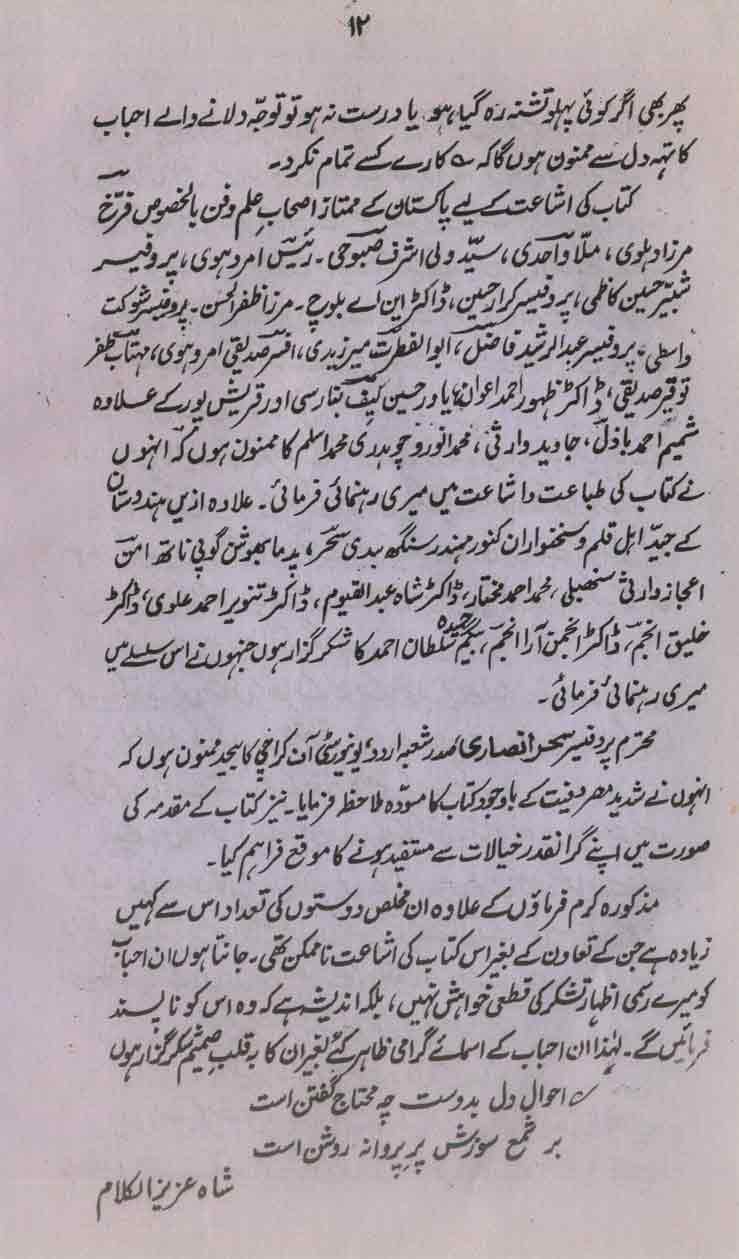 ۱۲
پھر بھی اگر کوئی پہلو تشنہ رہ گیا ہو۔ یا درست نہ ہو تو توجّہ دلانے والے احباب
کا تہہ دل سے ممنون ہوں گا کہ ؎ کارے کسے تمام نکرد۔
کتاب کی اشاعت کے لیے پاکستان کے ممتاز اصحابِ علم و فن بالخصوص فرّخ
مرزا دہلوی، ملّا واحدی، سیّد ولی اشرف صبوحی۔ رئیس امروہوی، پروفیسر
شبیّر حسین کاظمی، پروفیسر کرار حسین، ڈاکٹر این اے بلوچ۔ مرزا ظفر الحسن۔ پروفیسر شوکت
واسطی، پروفیسر عبد الرشید فاضل، ابو الفطرت میر زیدی، افسر صدیقی امروہوی، مہتاب ظفر
توقیر صدیقی، ڈاکٹر ظہور احمد اعوان، یاور حسین کیف بنارسی اور قریش پور کے علاوہ
شمیم احمد باذل، جاوید وارثی، محمد انور و چوہدری محمد اسلم کا ممنون ہوں کہ انہوں
نے کتاب کی طباعت و اشاعت میں میری رہنمائی فرمائی۔ علاوہ ازیں ہندوستان
کے جیّد اہل قلم و سخنوران کنور مہندر سنگھ بیدی سحر، پدما بھوشن گوپی ناتھ امن
اعجاز وارثی سنبھلی، محمد احمد مختار، ڈاکٹر شاہ عبد القیوم، ڈاکٹر تنویر احمد علوی، ڈاکٹر
خلیق انجم، ڈاکٹر انجمن آرا انجم، بیگم سلطان احمد کا شکر گزار ہوں جنہوں نے اس سلسلے میں
میری رہنمائی فرمائی۔
محترم پروفیسر سحر انصاری صدر شعبہ اردو یونیورسٹی آف کراچی کا بیحد ممنون ہوں کہ
انہوں نے شدید مصروفیت کے باوجود کتاب کا مسودّہ ملاحظہ فرمایا۔ نیز کتاب کے مقدمہ کی
صورت میں اپنے گرانقدر خیالات سے مستفید ہونے کا موقع فراہم کیا۔
مذکورہ کرم فرماؤں کے علاوہ ان مخلص دوستوں کی تعداد اس سے کہیں
زیادہ ہے جن کے تعاون کے بغیر اس کتاب کی اشاعت ناممکن تھی۔ جانتا ہوں ان احباب
کو میرے رسمی اظہار تشکر کی قطعی خواہش نہیں، بلکہ اندیشہ ہے کہ وہ اس کو ناپسند
فرمائیں گے۔ لہٰذا ان احباب کے اسمائے گرامی ظاہر کئے بغیر ان کا بہ قلب صمیم شکر گزار ہوں
؎ احوالِ دل بدوست چہ محتاج گفتن است
بر شمع سوزش پر پروانہ روشن است
شاہ عزیز الکلام